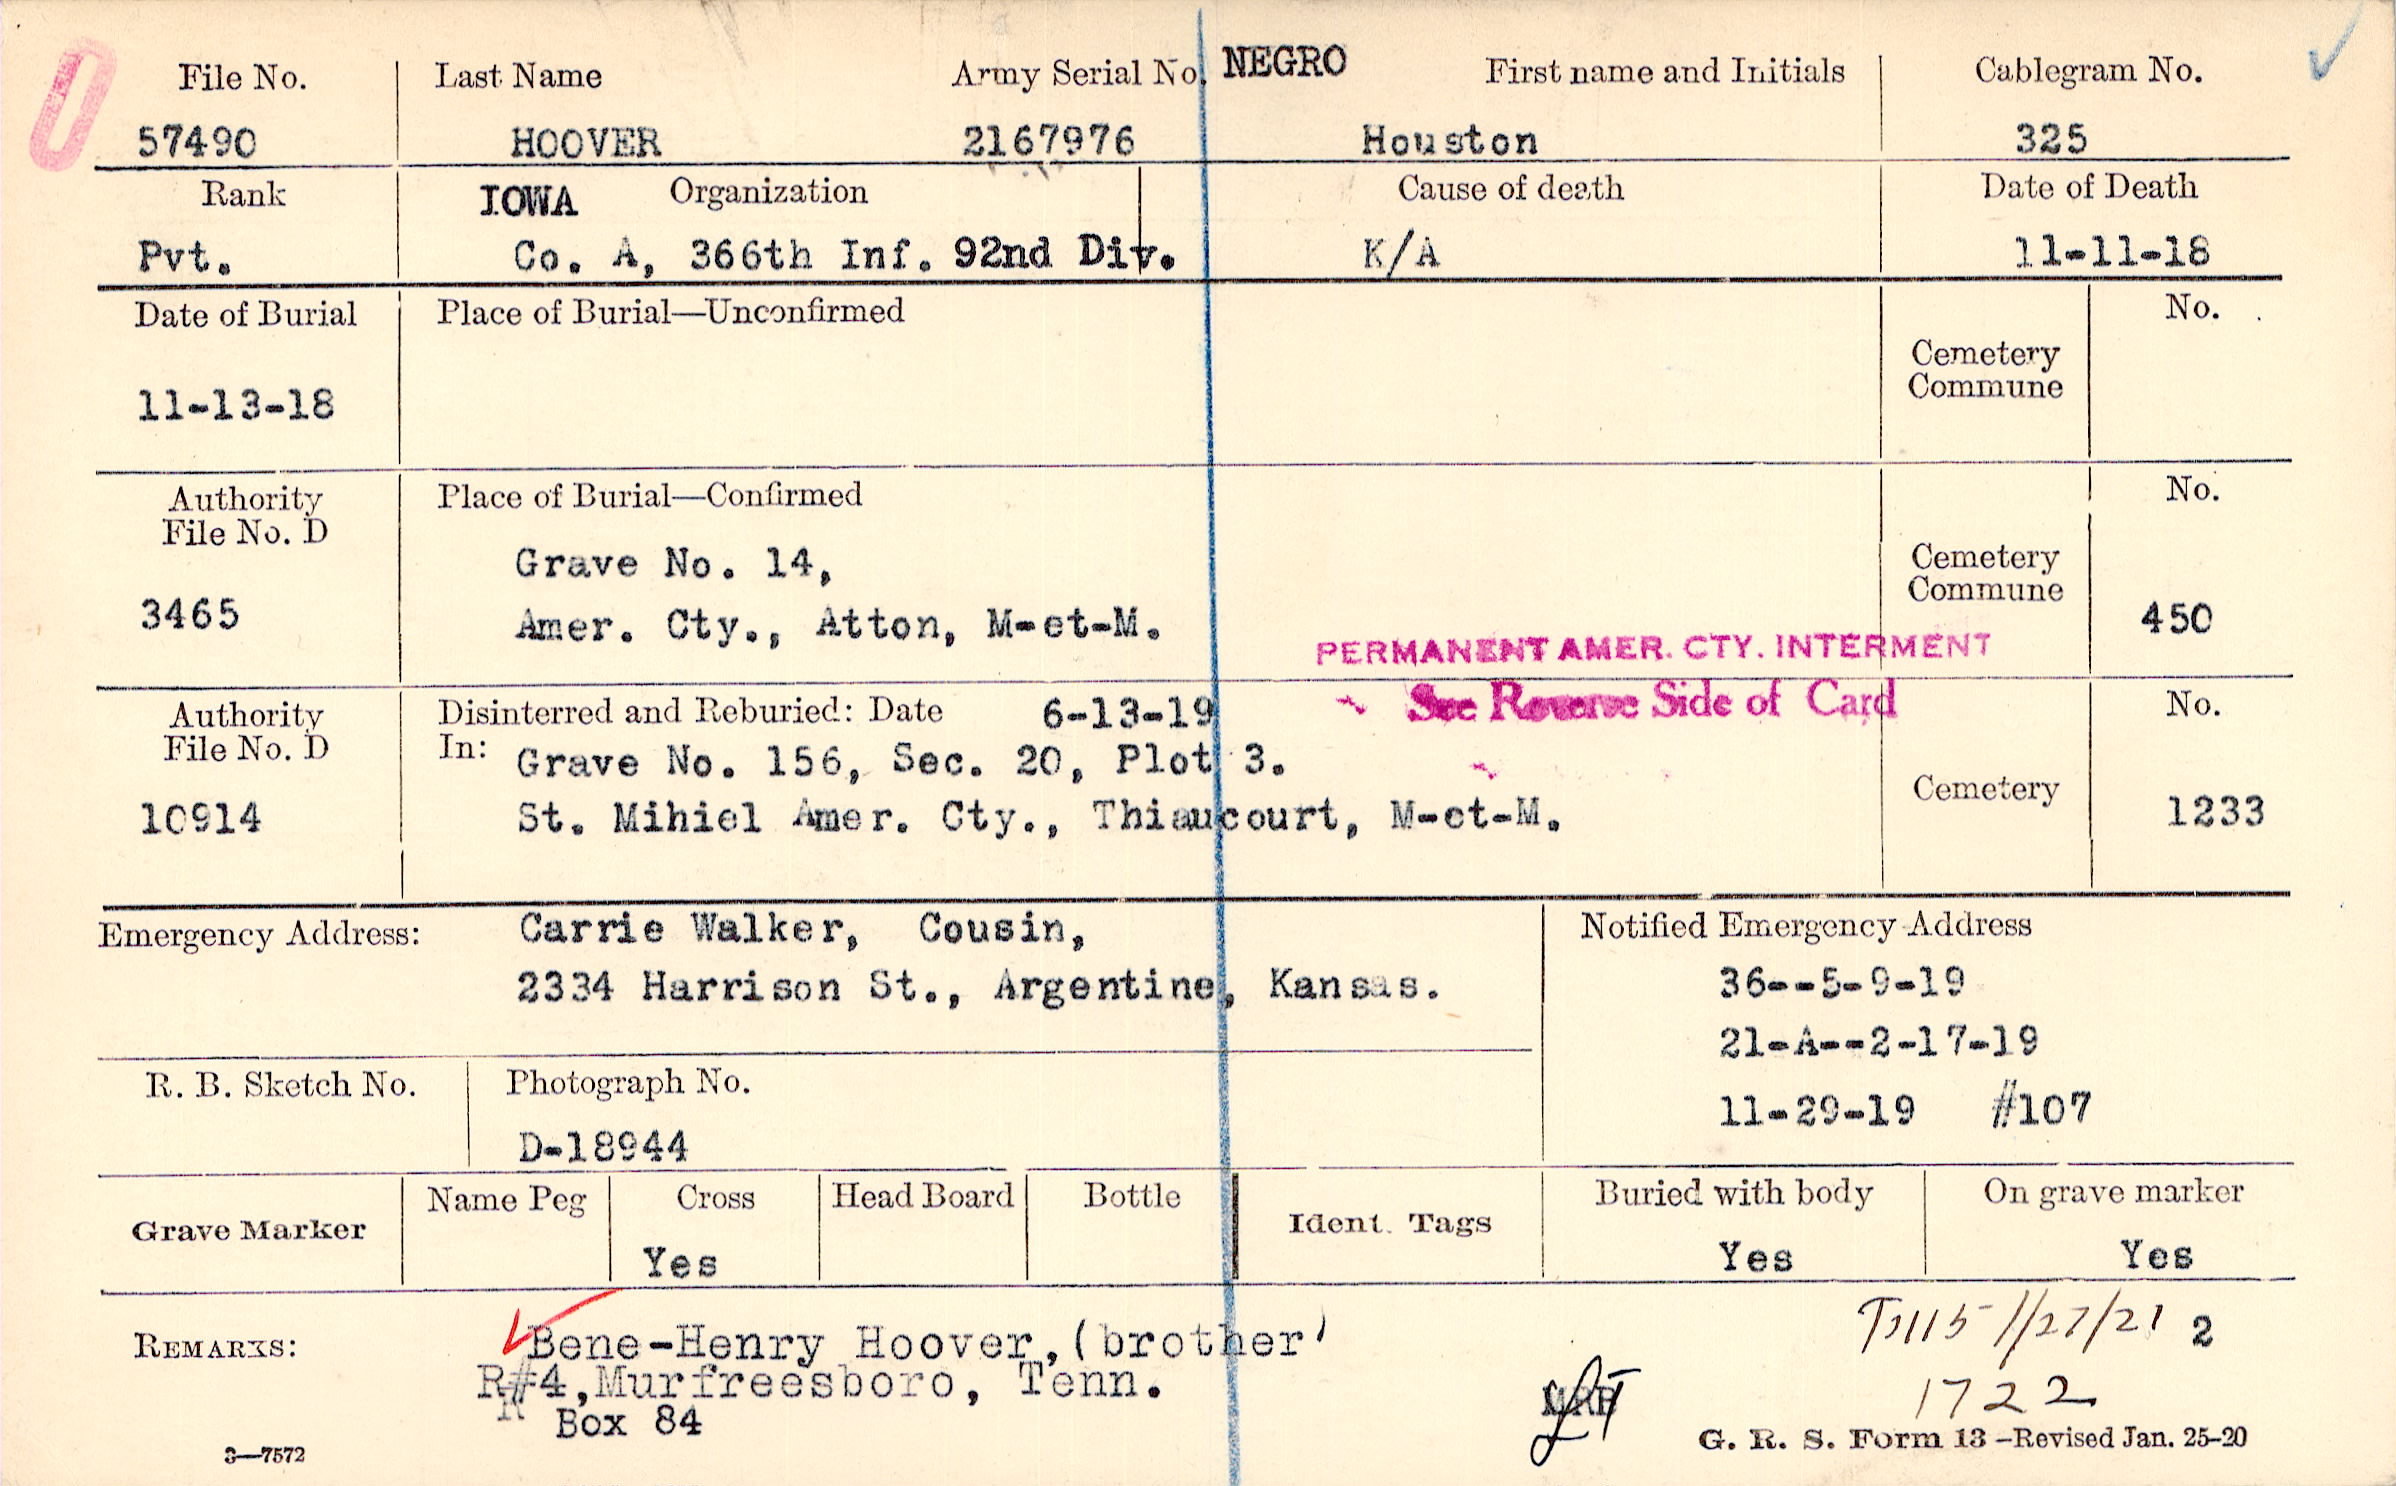 File No. Last Name Army Serial No. NEGRO First name and Initials Cablegram No.
57490 HOOVER 2167976 Houston 325
Rank IOWA Organization Cause of death Date of Death
Pvt. Co. A, 366th Inf. 92nd Div. K/A 11-11-18
Date of Burial Place of Burial—Unconfirmed No.
Cemetery
Commune
11-13-18
Authority Place of Burial—Confirmed No.
File No. D
Grave No. 14, Cemetery
Commune
3465 Amer. Cty., Atton, M-et-M. 450
PERMANENT AMER. CTY. INTERMENT
See Reverse Side of Card
Authority Disinterred and Reburied: Date 6-13-19 No.
File No. D In: Grave No. 156, Sec. 20, Plot 3.
Cemetery
10914 St. Mihiel Amer. Cty., Thiaucourt, M-et-M. 1233
Emergency Address: Carrie Walker, Cousin, Notified Emergency Address
2334 Harrison St., Argentine, Kansas. 36--5-9-19
21-A--2-17-19
R. B. Sketch No. Photograph No. 11-29-19 #107
D-18944
Grave Marker Name Peg Cross Head Board Bottle Ident. Tags Buried with body On grave marker
Yes Yes Yes
REMARKS: Bene-Henry Hoover, (brother)
R#4, Murfreesboro, Tenn.
Box 84
1/27/21 2
1722
3—7572 G. R. S. Form 13—Revised Jan. 25-20